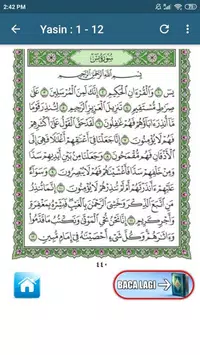 2:42 PM
Yasin : 1 - 12
سُورَةُ يسٓ
بِسْمِ اللَّهِ الرَّحْمَٰنِ الرَّحِيمِ
يسٓ وَالْقُرْآنِ الْحَكِيمِ إِنَّكَ لَمِنَ الْمُرْسَلِينَ عَلَىٰ
صِرَاطٍ مُّسْتَقِيمٍ تَنزِيلَ الْعَزِيزِ الرَّحِيمِ لِتُنذِرَ
قَوْمًا مَّا أُنذِرَ آبَاؤُهُمْ فَهُمْ غَافِلُونَ لَقَدْ حَقَّ الْقَوْلُ عَلَىٰ أَكْثَرِهِمْ
فَهُمْ لَا يُؤْمِنُونَ إِنَّا جَعَلْنَا فِي أَعْنَاقِهِمْ أَغْلَالًا فَهِيَ إِلَى
الْأَذْقَانِ فَهُم مُّقْمَحُونَ وَجَعَلْنَا مِن بَيْنِ أَيْدِيهِمْ سَدًّا
وَمِنْ خَلْفِهِمْ سَدًّا فَأَغْشَيْنَاهُمْ فَهُمْ لَا يُبْصِرُونَ وَسَوَاءٌ
عَلَيْهِمْ ءَأَنذَرْتَهُمْ أَمْ لَمْ تُنذِرْهُمْ لَا يُؤْمِنُونَ إِنَّمَا تُنذِرُ
مَنِ اتَّبَعَ الذِّكْرَ وَخَشِيَ الرَّحْمَٰنَ بِالْغَيْبِ فَبَشِّرْهُ بِمَغْفِرَةٍ
وَأَجْرٍ كَرِيمٍ إِنَّا نَحْنُ نُحْيِ الْمَوْتَىٰ وَنَكْتُبُ مَا قَدَّمُوا
وَآثَارَهُمْ وَكُلَّ شَيْءٍ أَحْصَيْنَاهُ فِي إِمَامٍ مُّبِينٍ
BACA LAGI